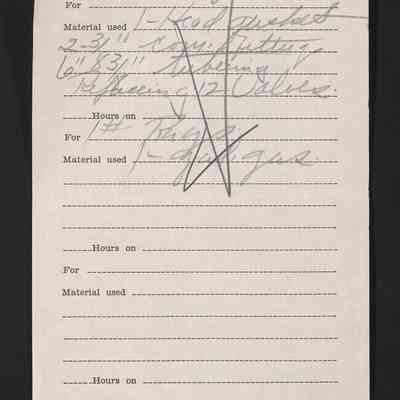 For
Material used 1-Head gasket
2-3/1" comp. fitting,
6" of 3/1" tubeing
Refaceing 12 Valves.
Hours on
For 1# Rags
Material used 1- gal. gas.
Hours on
For
Material used
Hours on